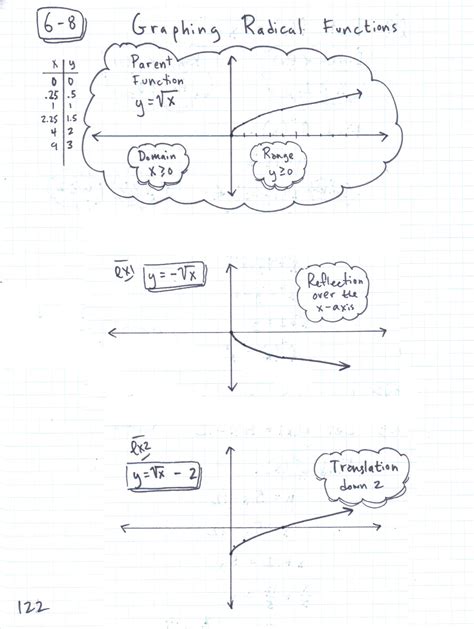 6-8 Graphing Radical Functions
x y
0 0
.25 .5
1 1
2.25 1.5
4 2
9 3
Parent
Function
y=√x
Domain
x≥0
Range
y≥0
ex1 y=-√x
Reflection
over the
x-axis
ex2
y=√x - 2
Translation
down 2
122